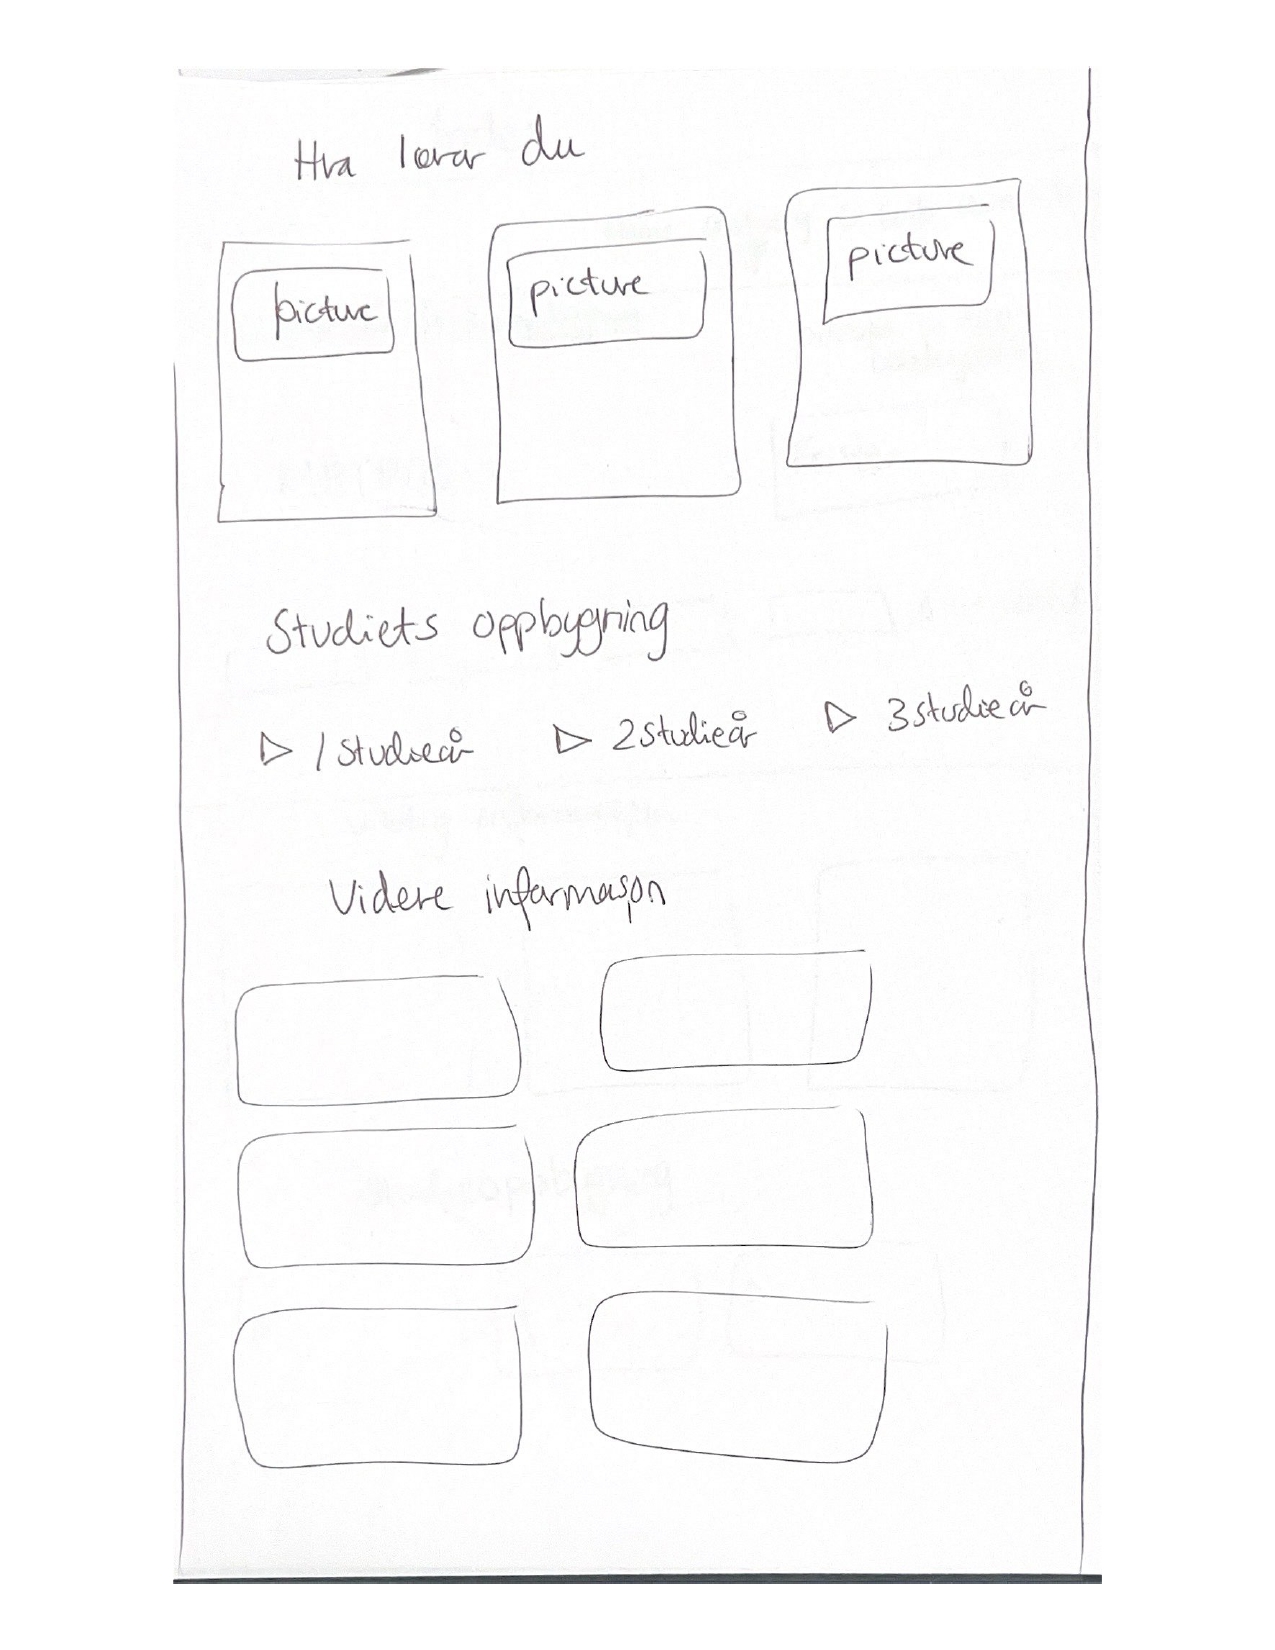 Hva lærer du
picture picture picture
Studiets oppbygning
▷ 1 studieår ▷ 2 studieår ▷ 3 studieår
Videre informasjon